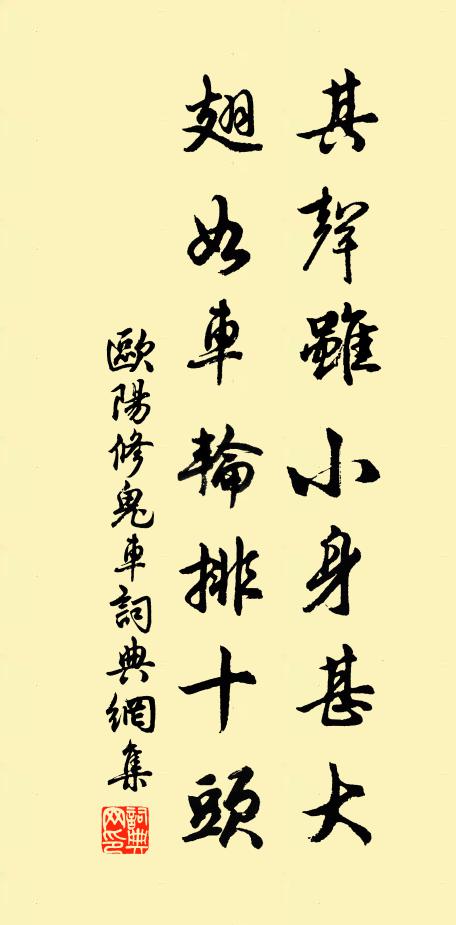 其聲雖小身甚大
翅如車輪排十頭
歐陽修鬼車詞典網集
詞典网印